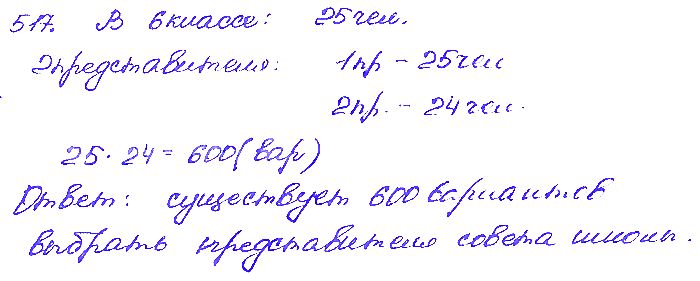 517. В 6 классе: 25 чел.
2 представителя: 1 пр - 25 чел
2 пр. - 24 чел.
25 · 24 = 600 (вар)
Ответ: существует 600 вариантов
выбрать представителя совета школы.